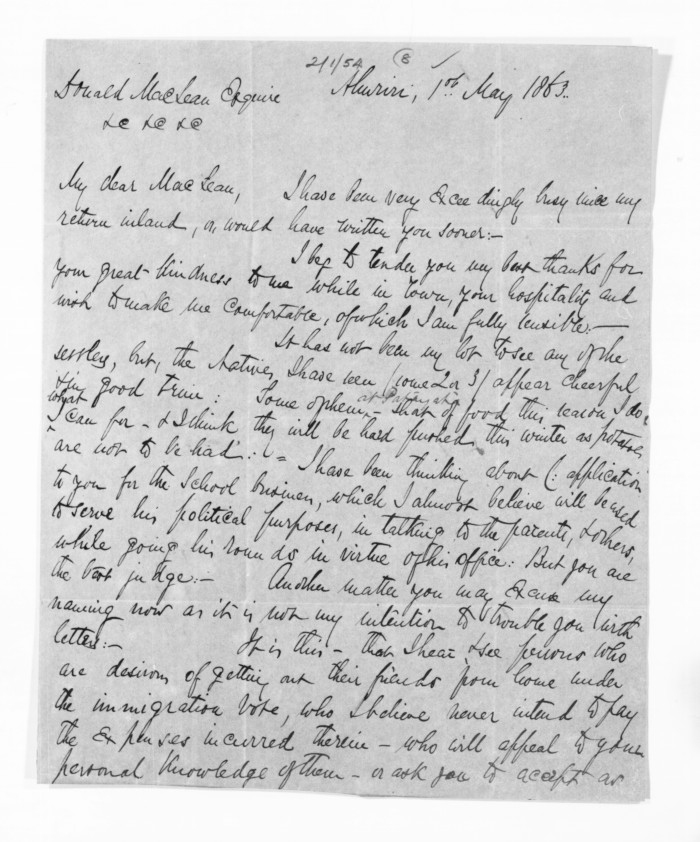 2/1/54 (8)
Donald MacLean Esquire Ahuriri, 1st May 1863.
&c &c &c
My dear MacLean, I have been very exceedingly busy since my
return inland, or would have written you sooner:-
I beg to tender you my best thanks for
your great kindness to me while in Town, your hospitality and
wish to make me comfortable, of which I am fully sensible:-
It has not been my lot to see any of the
settlers, but, the Natives I have seen (some 2 or 3) appear cheerful
& in good trim: Some of them - short of food this season I do
at Patangata
what
I can for - & I think they will be hard pushed this winter as potatoes
are not to be had:. = I have been thinking about (: application
to you for the School business, which I almost believe will be used
to serve his political purposes, in talking to the parents, & others,
while going his rounds in virtue of his office: But you are
the best judge:- Another matter you may excuse my
naming now as it is not my intention to trouble you with
letters:- It is this - that I hear & see persons who
are desirous of getting out their friends from home under
the immigration vote, who I believe never intend to pay
the expenses incurred therein - who will appeal to your
personal knowledge of them - or ask you to accept as